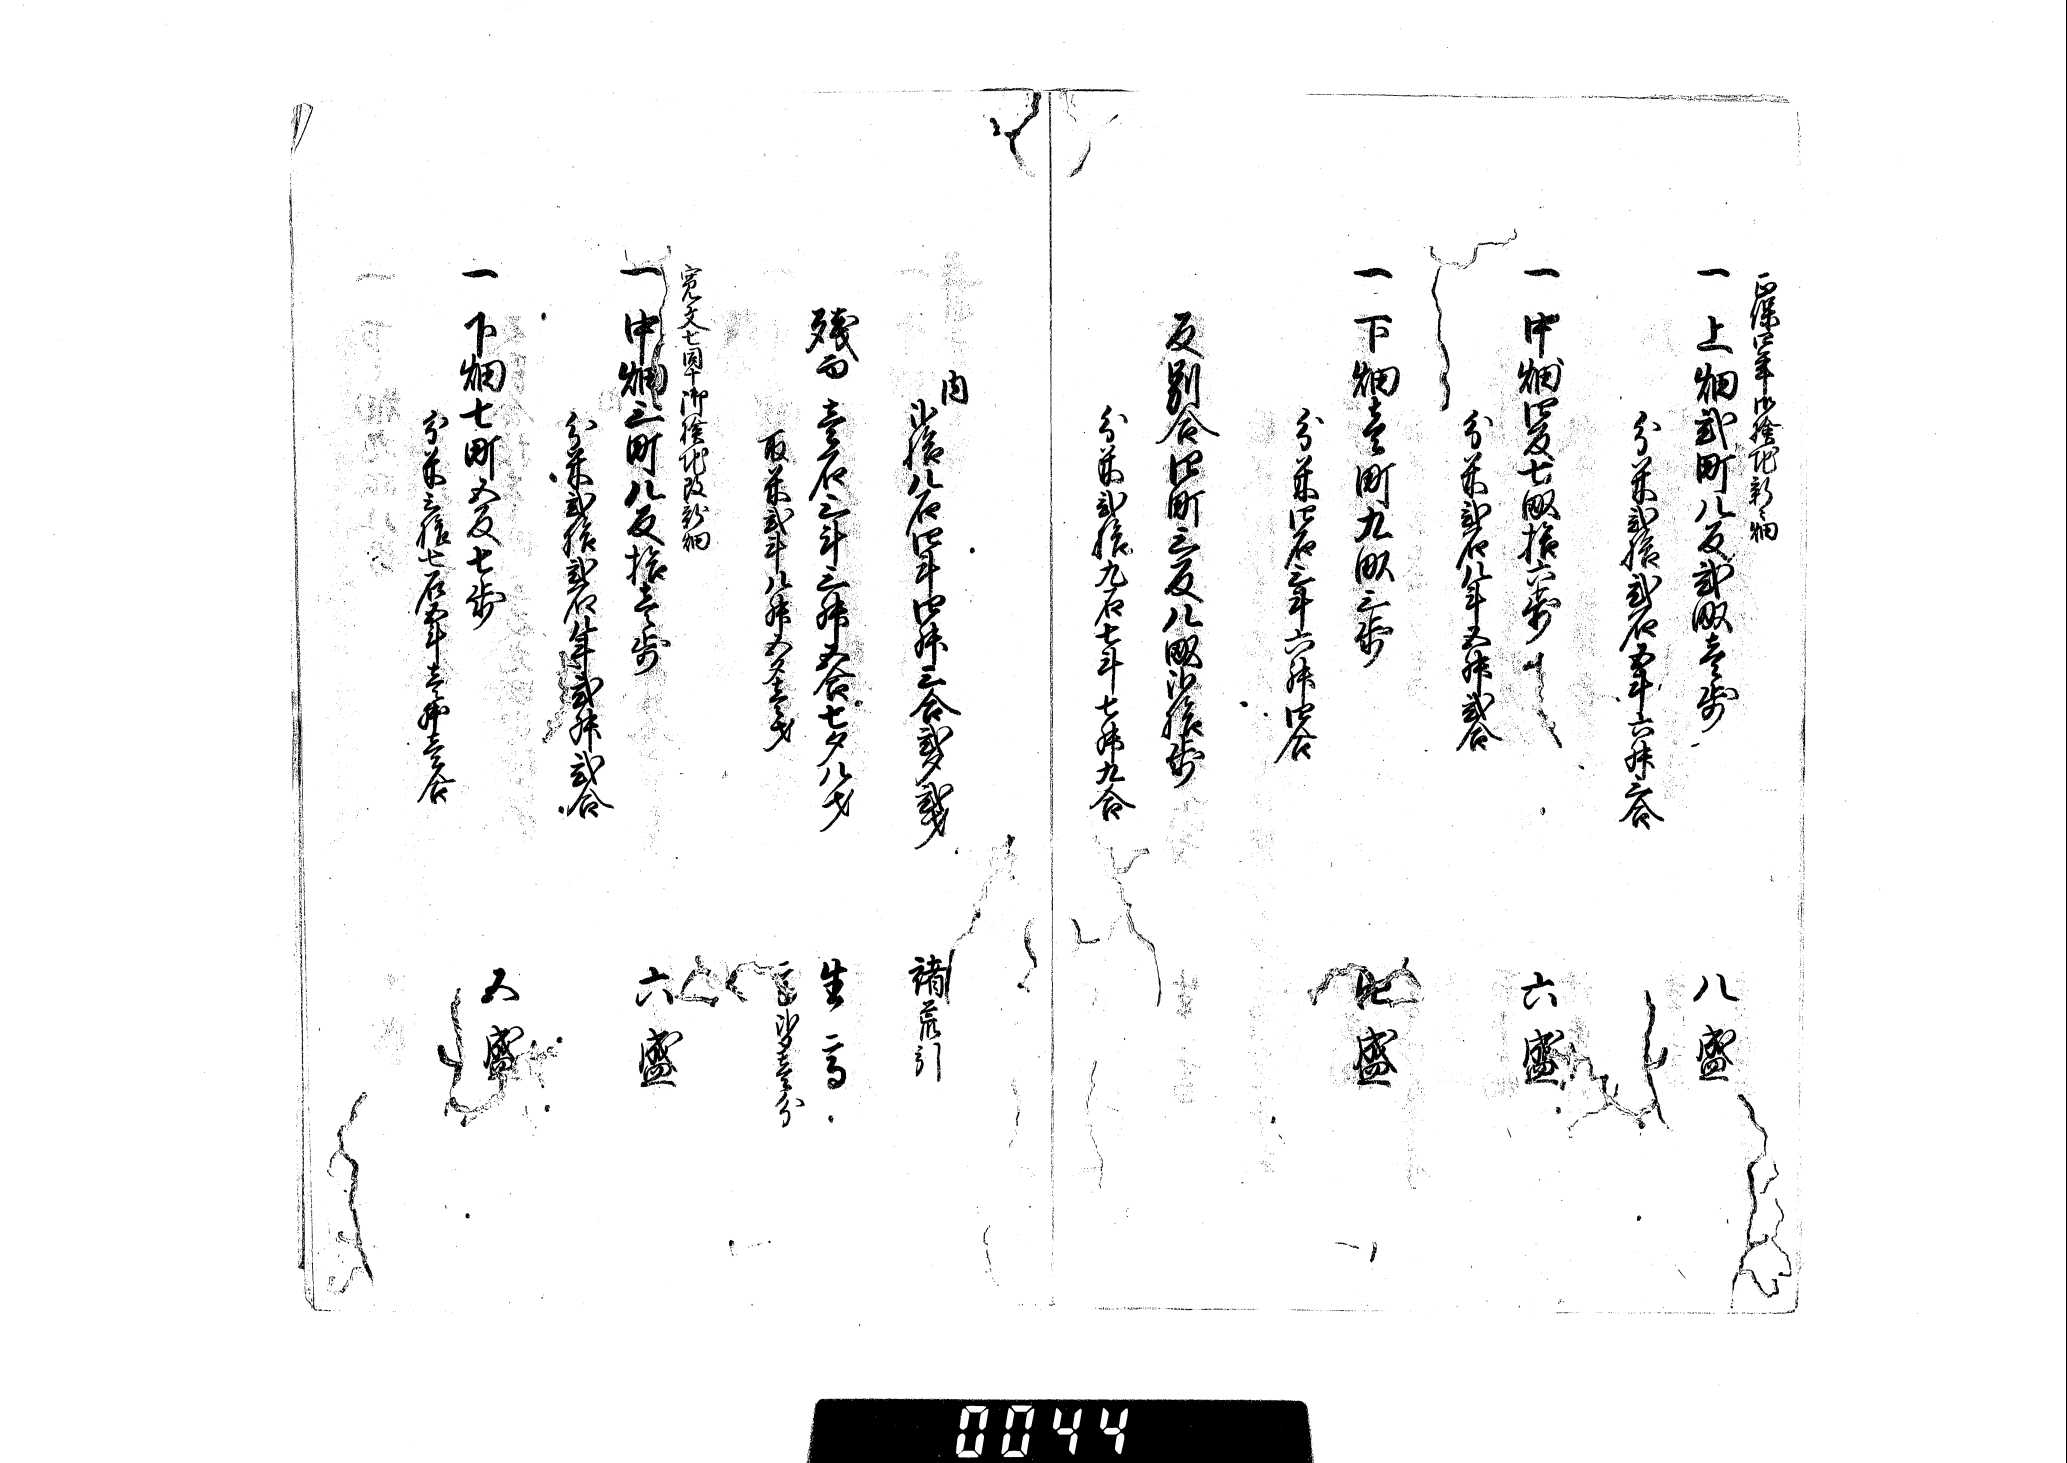 正保四年御検地新畑
一 上畑弐町八反弐畝壱歩 八盛
分米弐拾弐石五斗六升三合
一 中畑四反七畝拾六歩 六盛
分米弐石八斗五升弐合
一 下畑壱町九畝三歩 四盛
分米四石三斗六升四合
反別合四町三反八畝弐拾歩
分米弐拾九石七斗七升九合
内
弐拾八石四斗四升三合弐夕弐才 諸荒引
残而 壱石三斗三升五合七夕八才 生高
取米弐斗八升五夕壱才 高弐ツ壱分
寛文七同十御検地改新畑
一 中畑三町八反拾壱歩 六盛
分米弐拾弐石八斗弐升弐合
一 下畑七町五反七歩 五盛
分米三拾七石五斗壱升壱合
0044